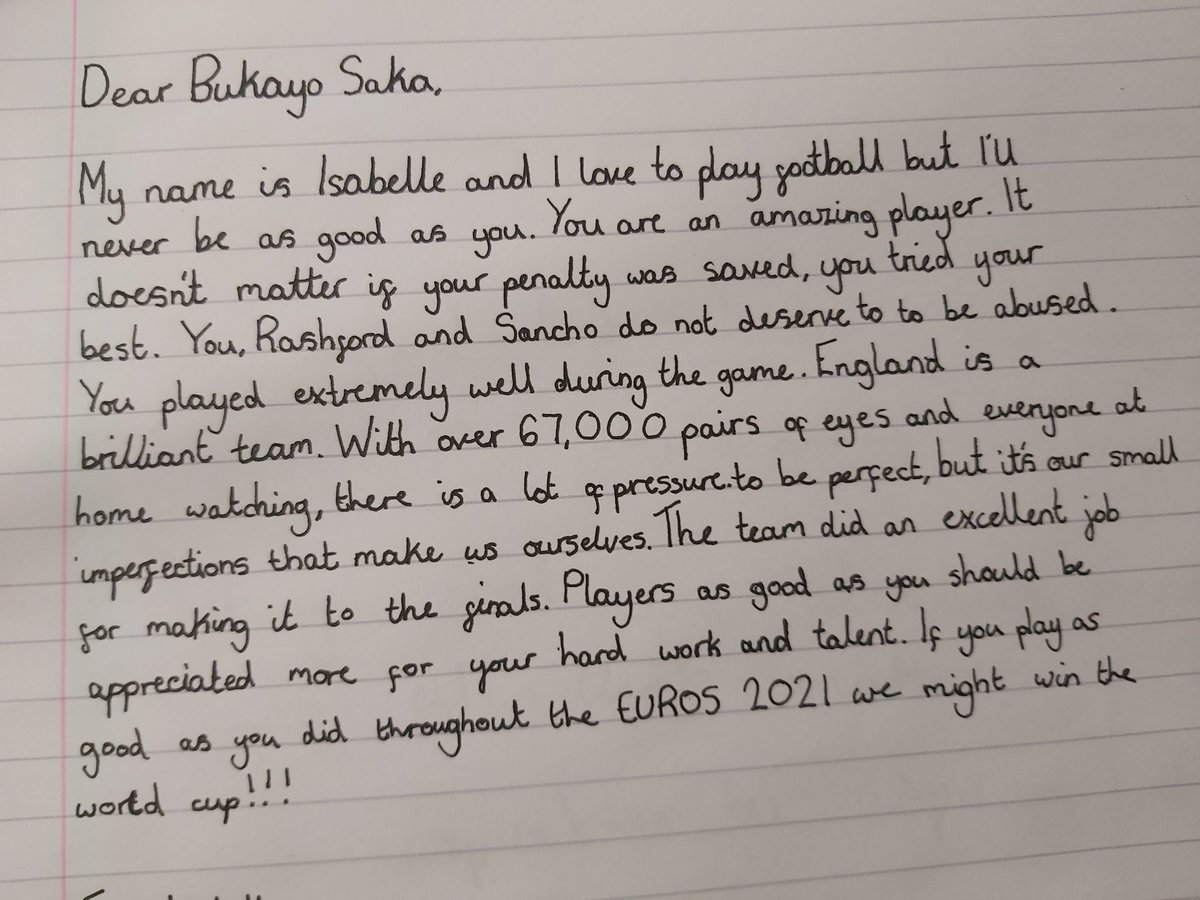 Dear Bukayo Saka,
My name is Isabelle and I love to play football but I'll
never be as good as you. You are an amazing player. It
doesn't matter if your penalty was saved, you tried your
best. You, Rashford and Sancho do not deserve to to be abused.
You played extremely well during the game. England is a
brilliant team. With over 67,000 pairs of eyes and everyone at
home watching, there is a lot of pressure.to be perfect, but it's our small
imperfections that make us ourselves. The team did an excellent job
for making it to the finals. Players as good as you should be
appreciated more for your hard work and talent. If you play as
good as you did throughout the EUROS 2021 we might win the
world cup!!!